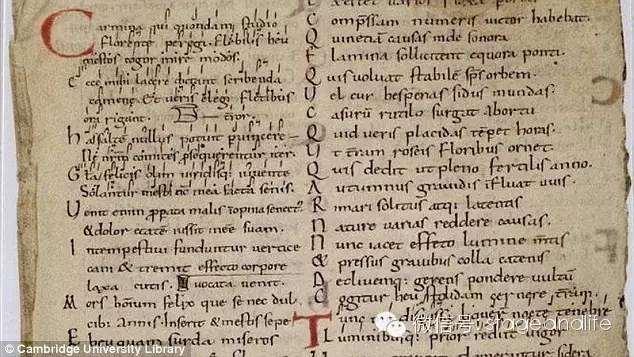 Carmina qui quondam studio
Florente peregi. Flebilis heu
mestos cogor inire modos.
Ecce mihi lacere dictant scribenda
camene. Et veris elegi fletibus
ora rigant. terror.
has saltē nullus potuit pvincere
Ne nr̄m comites psequerentur iter.
Gl̄a felicis olim viridisq; iuvente
Solantur mesti nc̄ mea fata senis.
Venit enim ppata malis inopina senect'
& dolor etatē iussit inesse suam.
Intempestivi funduntur vertice
cani & tremit effecto corpore
laxa cutis. vocata venit.
Mors hominum felix que se nec dul
cib; Annis. Inserit & mestis sepe
Eheu quam surda miseros
Compressam numeris victor habebat.
Quinetiā causas unde sonora
Flamina sollicitent equora ponti.
Quis voluat stabilē sp̄s orbem.
Vel cur hesperias sidus in undas.
Casurū rutilo surgat abortu
Quid veris placidas tēpet horas.
Vt t̄ram roseis floribus ornet.
Quis dedit ut pleno fertilis anno.
Autumnus gravidis īfluat uvis.
Rimari solitus atq; latentis
Nature varias reddere causas.
Nunc iacet effeto lumine m̄tis
& pressus gravibus colla catenis
Declivemq; gerens pondere vultū
Cogitur heu stolidam cernere t̄ram.
Tunc nocte tenebre
Luminibusq; prior rediit vigor.
微信号: stageandlife
© Cambridge University Library